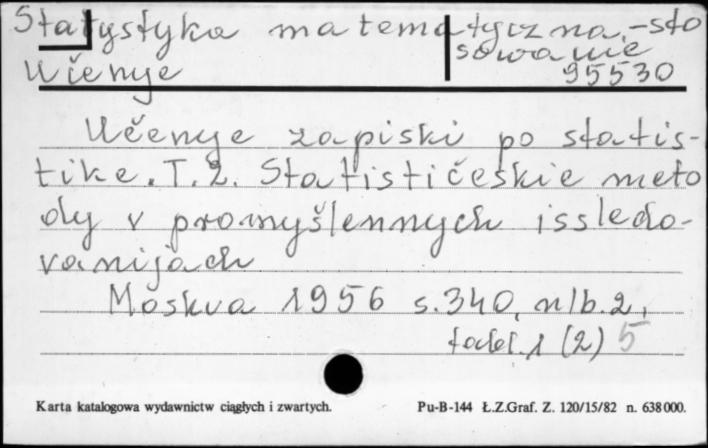 Statystyka matematyczna - sto
sowanie
Učenye 95530
Učenye zapiski po statis-
tike. T. 2. Statističeskie meto
dy v promyšlennych issledo-
vanijach
Moskva 1956 s. 340, nlb. 2,
tabl. 1 (2) 5
Karta katalogowa wydawnictw ciągłych i zwartych. Pu-B-144 Ł.Z.Graf. Z. 120/15/82 n. 638 000.